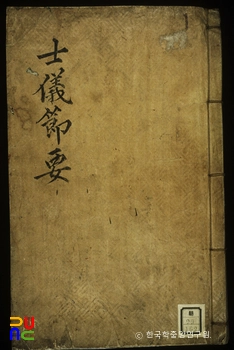 士儀節要
© 한국학중앙연구원